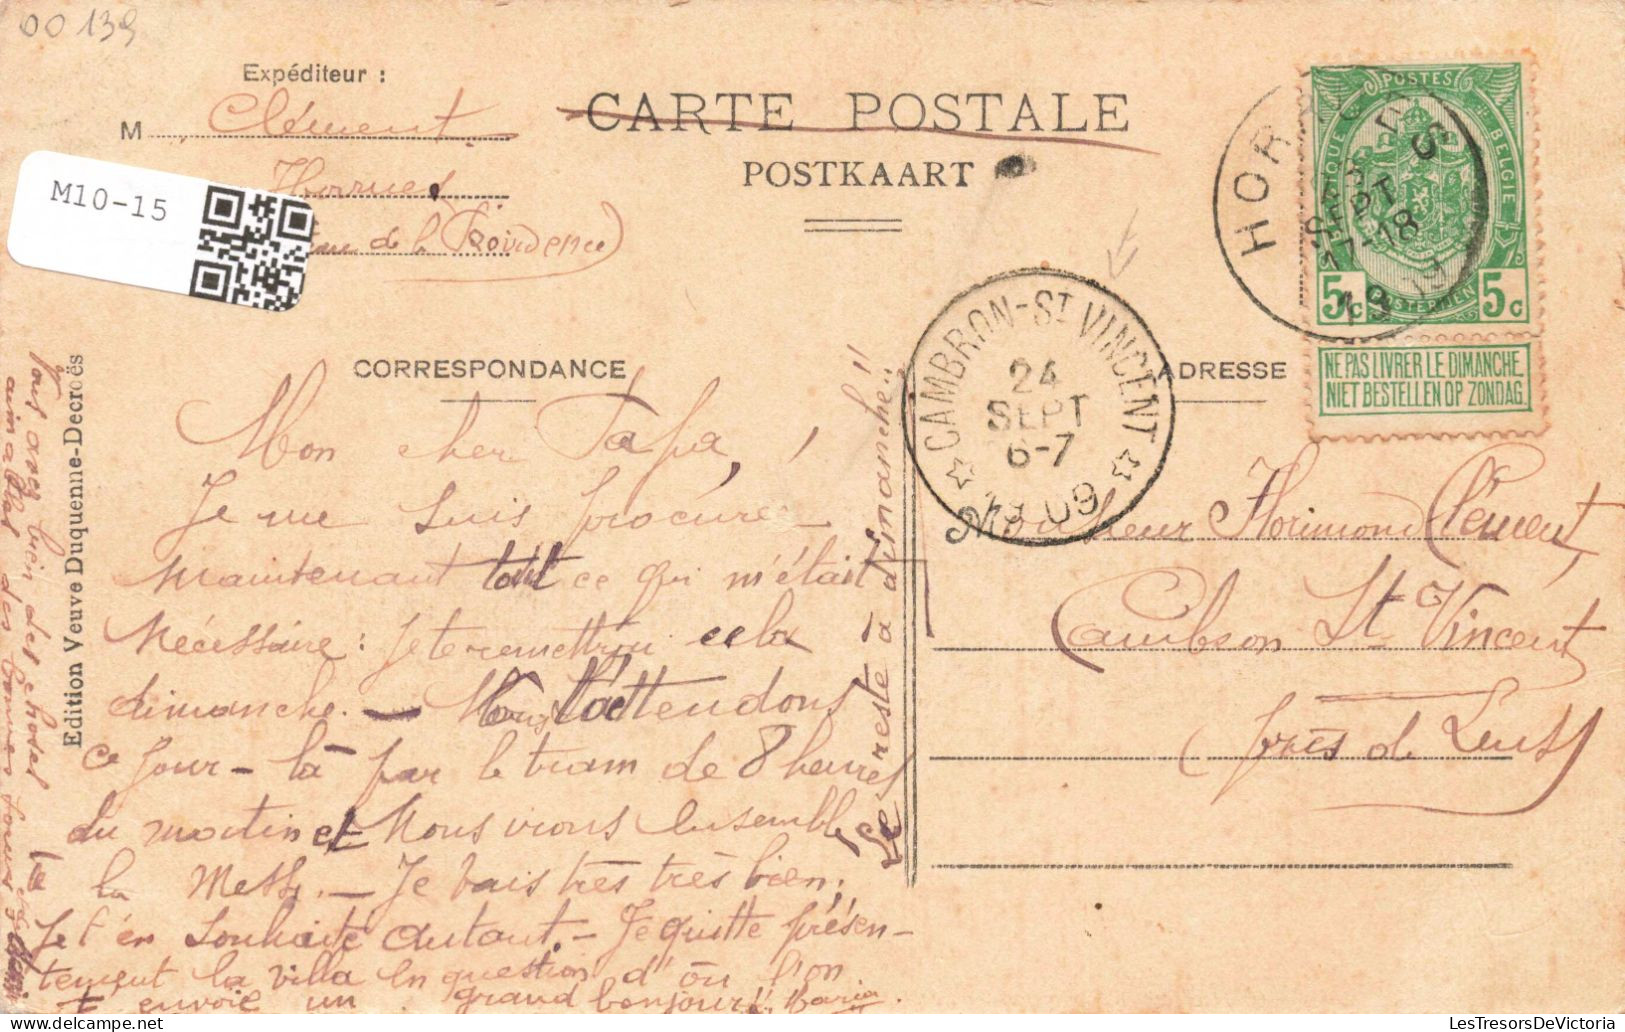 00139
Expéditeur :
M Clément
Horrues
rue de la Providence)
M10-15
CARTE POSTALE
POSTKAART
HORRUES
23
SEPT
17-18
1909
POSTES
BELGIQUE BELGIE
5c 5c
NE PAS LIVRER LE DIMANCHE
NIET BESTELLEN OP ZONDAG
CAMBRON-ST VINCENT
24
SEPT
6-7
1909
CORRESPONDANCE
ADRESSE
Edition Veuve Duquenne-Decroës
Mon cher Papa,
Je me suis procuré
maintenant tout ce qui m'était
nécessaire : je te remettrai cela
dimanche. — Nous t'attendons
ce jour-là par le tram de 8 heures
du matin et nous irons ensemble
la Messe. — Je vais très très bien,
je t'en souhaite autant. — Je quitte présen-
tement la villa en question d'où l'on
t'envoie un grand bonjour!! Maria.
Le reste à dimanche!!
Monsieur Florimond Clément,
Cambron St Vincent
près de Lens
LesTresorsDeVictoria